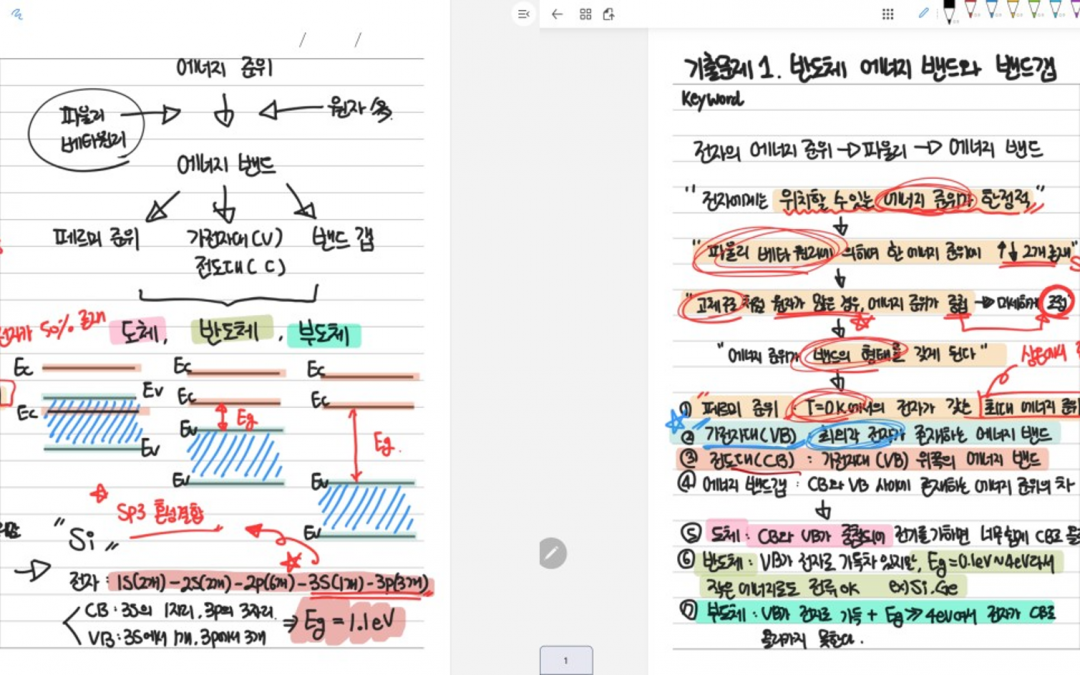 에너지 준위
파울리
베타원리
원자 수
에너지 밴드
페르미 준위
가전자대(V)
전도대(C)
밴드 갭
전자가 50% 존재
도체, 반도체, 부도체
Ec
Ev
Ec
Ev
Ec
Ec
Eg
Ev
Ev
Ec
Ec
Eg.
Ev
Ev
SP3 혼성결합
"Si"
전자 : 1S(2개)-2S(2개)-2P(6개)-3S(1개)-3P(3개)
CB : 3S의 1자리, 3P의 3자리
VB : 3S에서 1개, 3P에서 3개
⇒ Eg = 1.1eV
기출문제 1. 반도체 에너지 밴드와 밴드갭
Keyword
전자의 에너지 준위 → 파울리 → 에너지 밴드
"전자에게는 위치할 수 있는 에너지 준위가 한정적"
"파울리 베타 원리에 의하여 한 에너지 준위에 ↑↓ 2개 존재"
"고체구조처럼 원자가 많은 경우, 에너지 준위가 중첩 → 미세하게 쪼갬
"에너지 준위가 밴드의 형태를 갖게 된다"
상온에서
① 페르미 준위 : T=0K에서의 전자가 갖는 최대 에너지 준위
② 가전자대(VB) 최외각 전자가 존재하는 에너지 밴드
③ 전도대(CB) : 가전자대(VB) 위쪽의 에너지 밴드
④ 에너지 밴드갭 : CB와 VB 사이에 존재하는 에너지 준위의 차
⑤ 도체 : CB와 VB가 중첩되어 전기를 가하면 너무 쉽게 CB로
⑥ 반도체 : VB가 전자로 가득차 있지만, Eg=0.1eV~4eV라서
작은 에너지로도 전류 OK ex) Si, Ge
⑦ 부도체 : VB가 전자로 가득 + Eg≫4eV라서 전자가 CB로
올라가지 못한다.
1